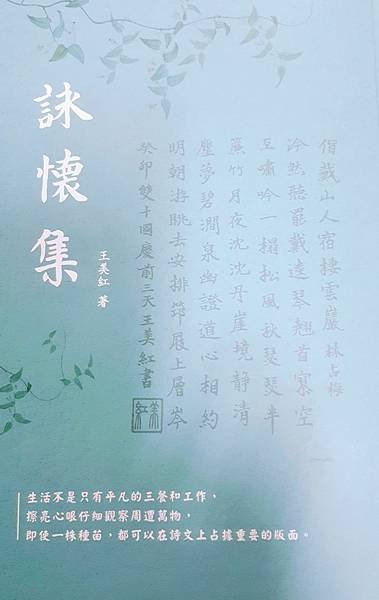 詠懷集
王美紅 著
偕戴山人宿棲雲巖 林占梅
泠然聽罷戴逵琴翹首寥空
互嘯吟一榻松風秋瑟瑟半
簾竹月夜沈沈丹崖境靜清
塵夢碧澗泉幽證道心相約
明朝游眺去安排筇屐上層岑
癸卯雙十國慶前三天王美紅書
美紅
生活不是只有平凡的三餐和工作，
擦亮心眼仔細觀察周遭萬物，
即使一株種苗，都可以在詩文上占據重要的版面。